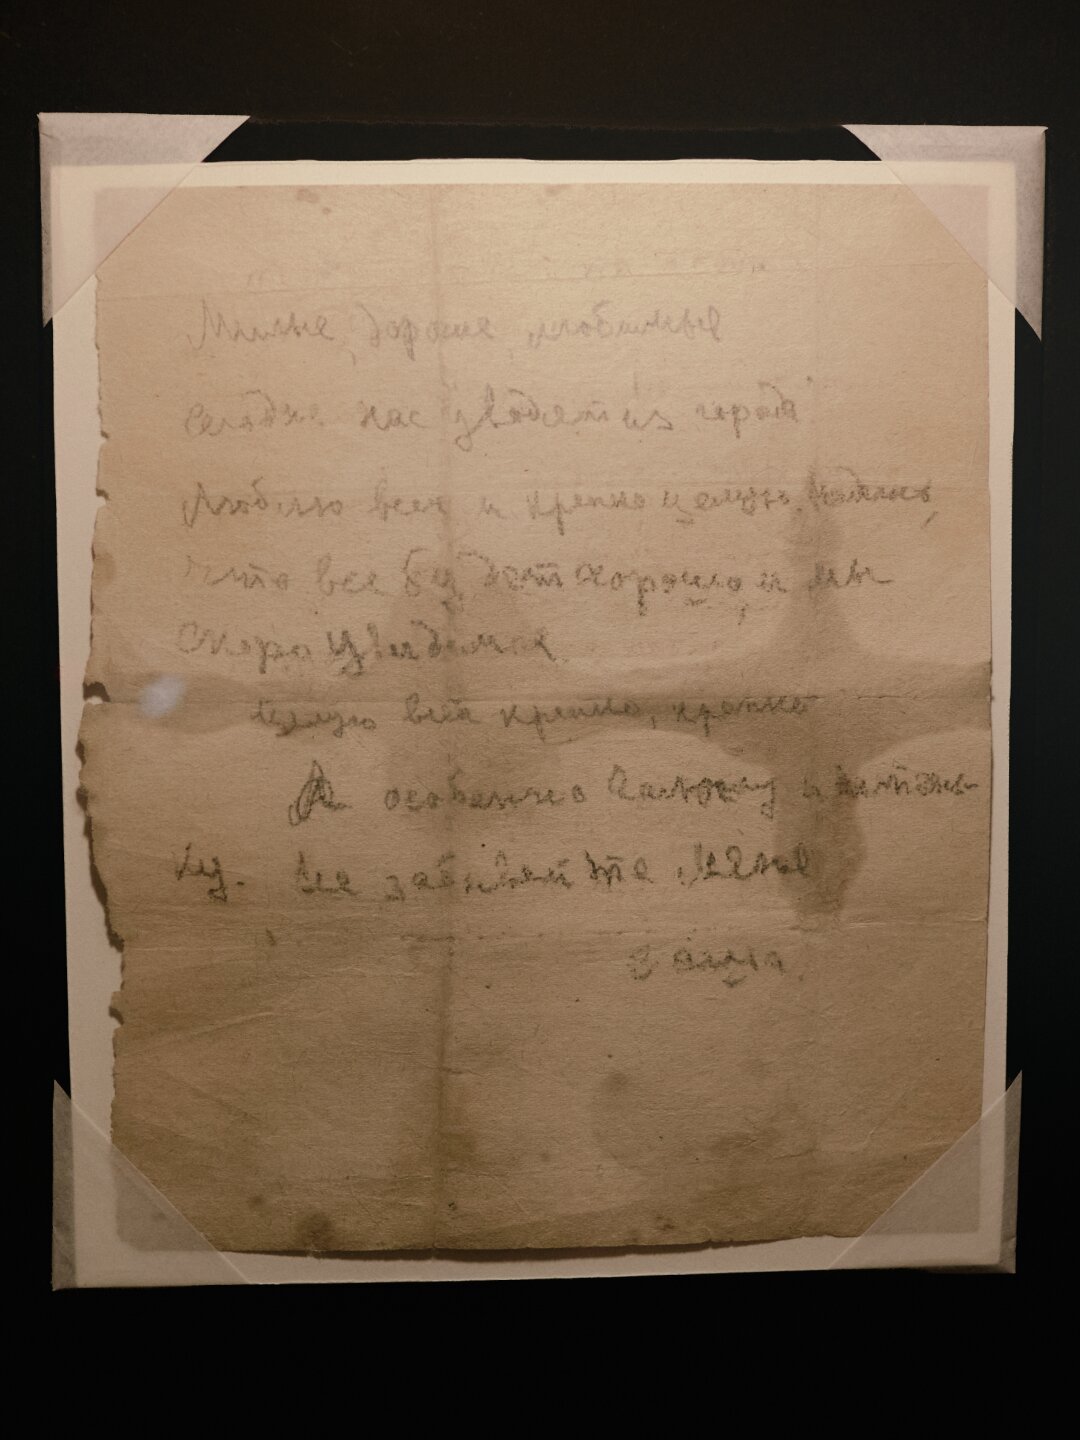 Милые, дорогие, любимые
сегодня нас уводят из города
Люблю всех и крепко целую. Надеюсь,
что все будет хорошо, и мы
скоро увидимся
Целую всех крепко, крепко
А особенно и
ку. Не забывайте меня